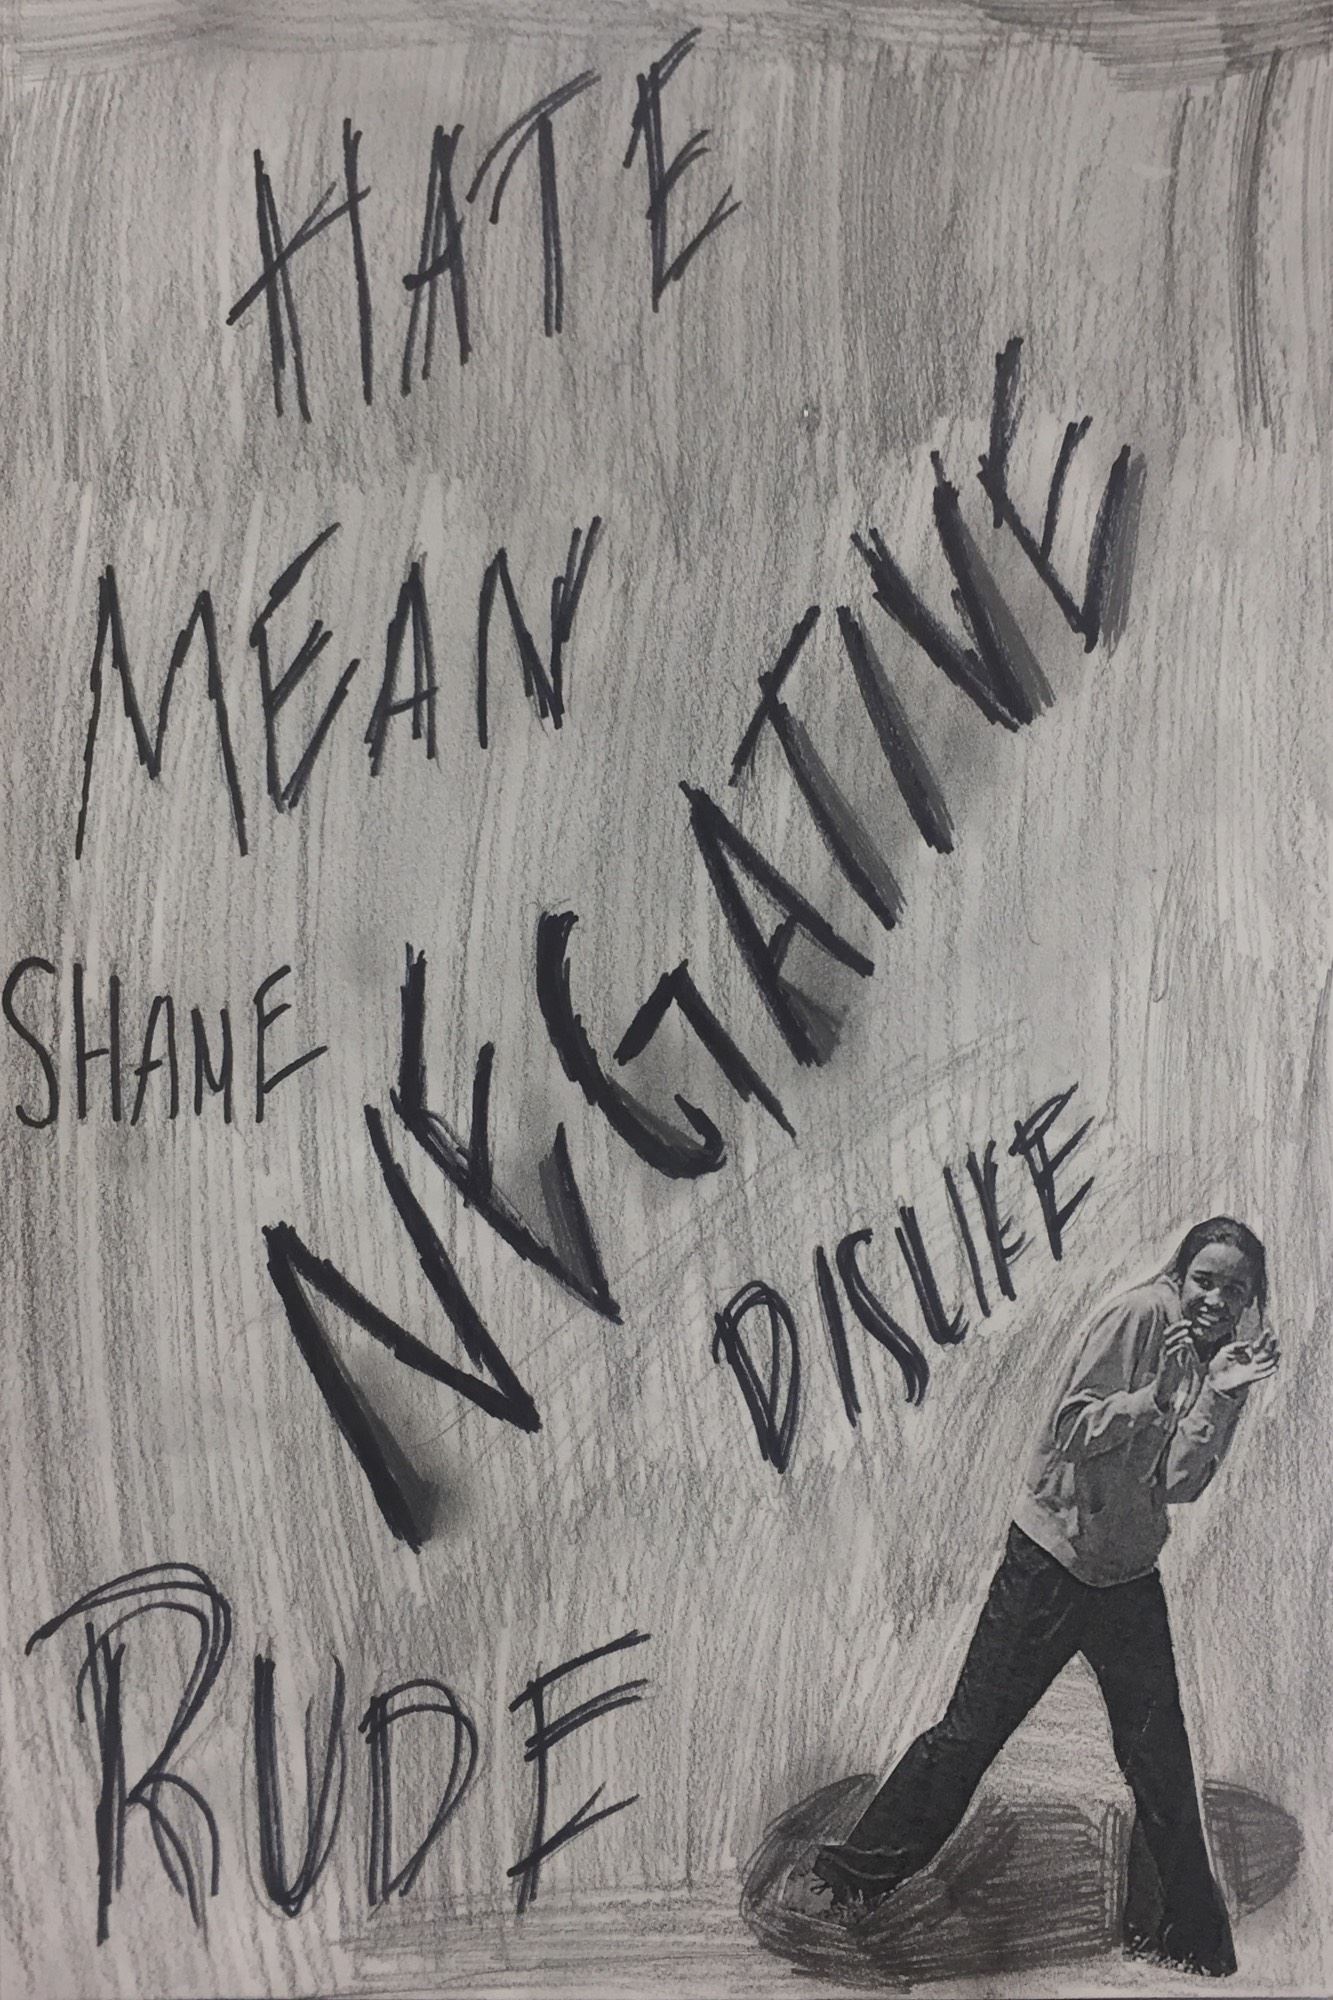 HATE
MEAN
NEGATIVE
SHAME
DISLIKE
RUDE